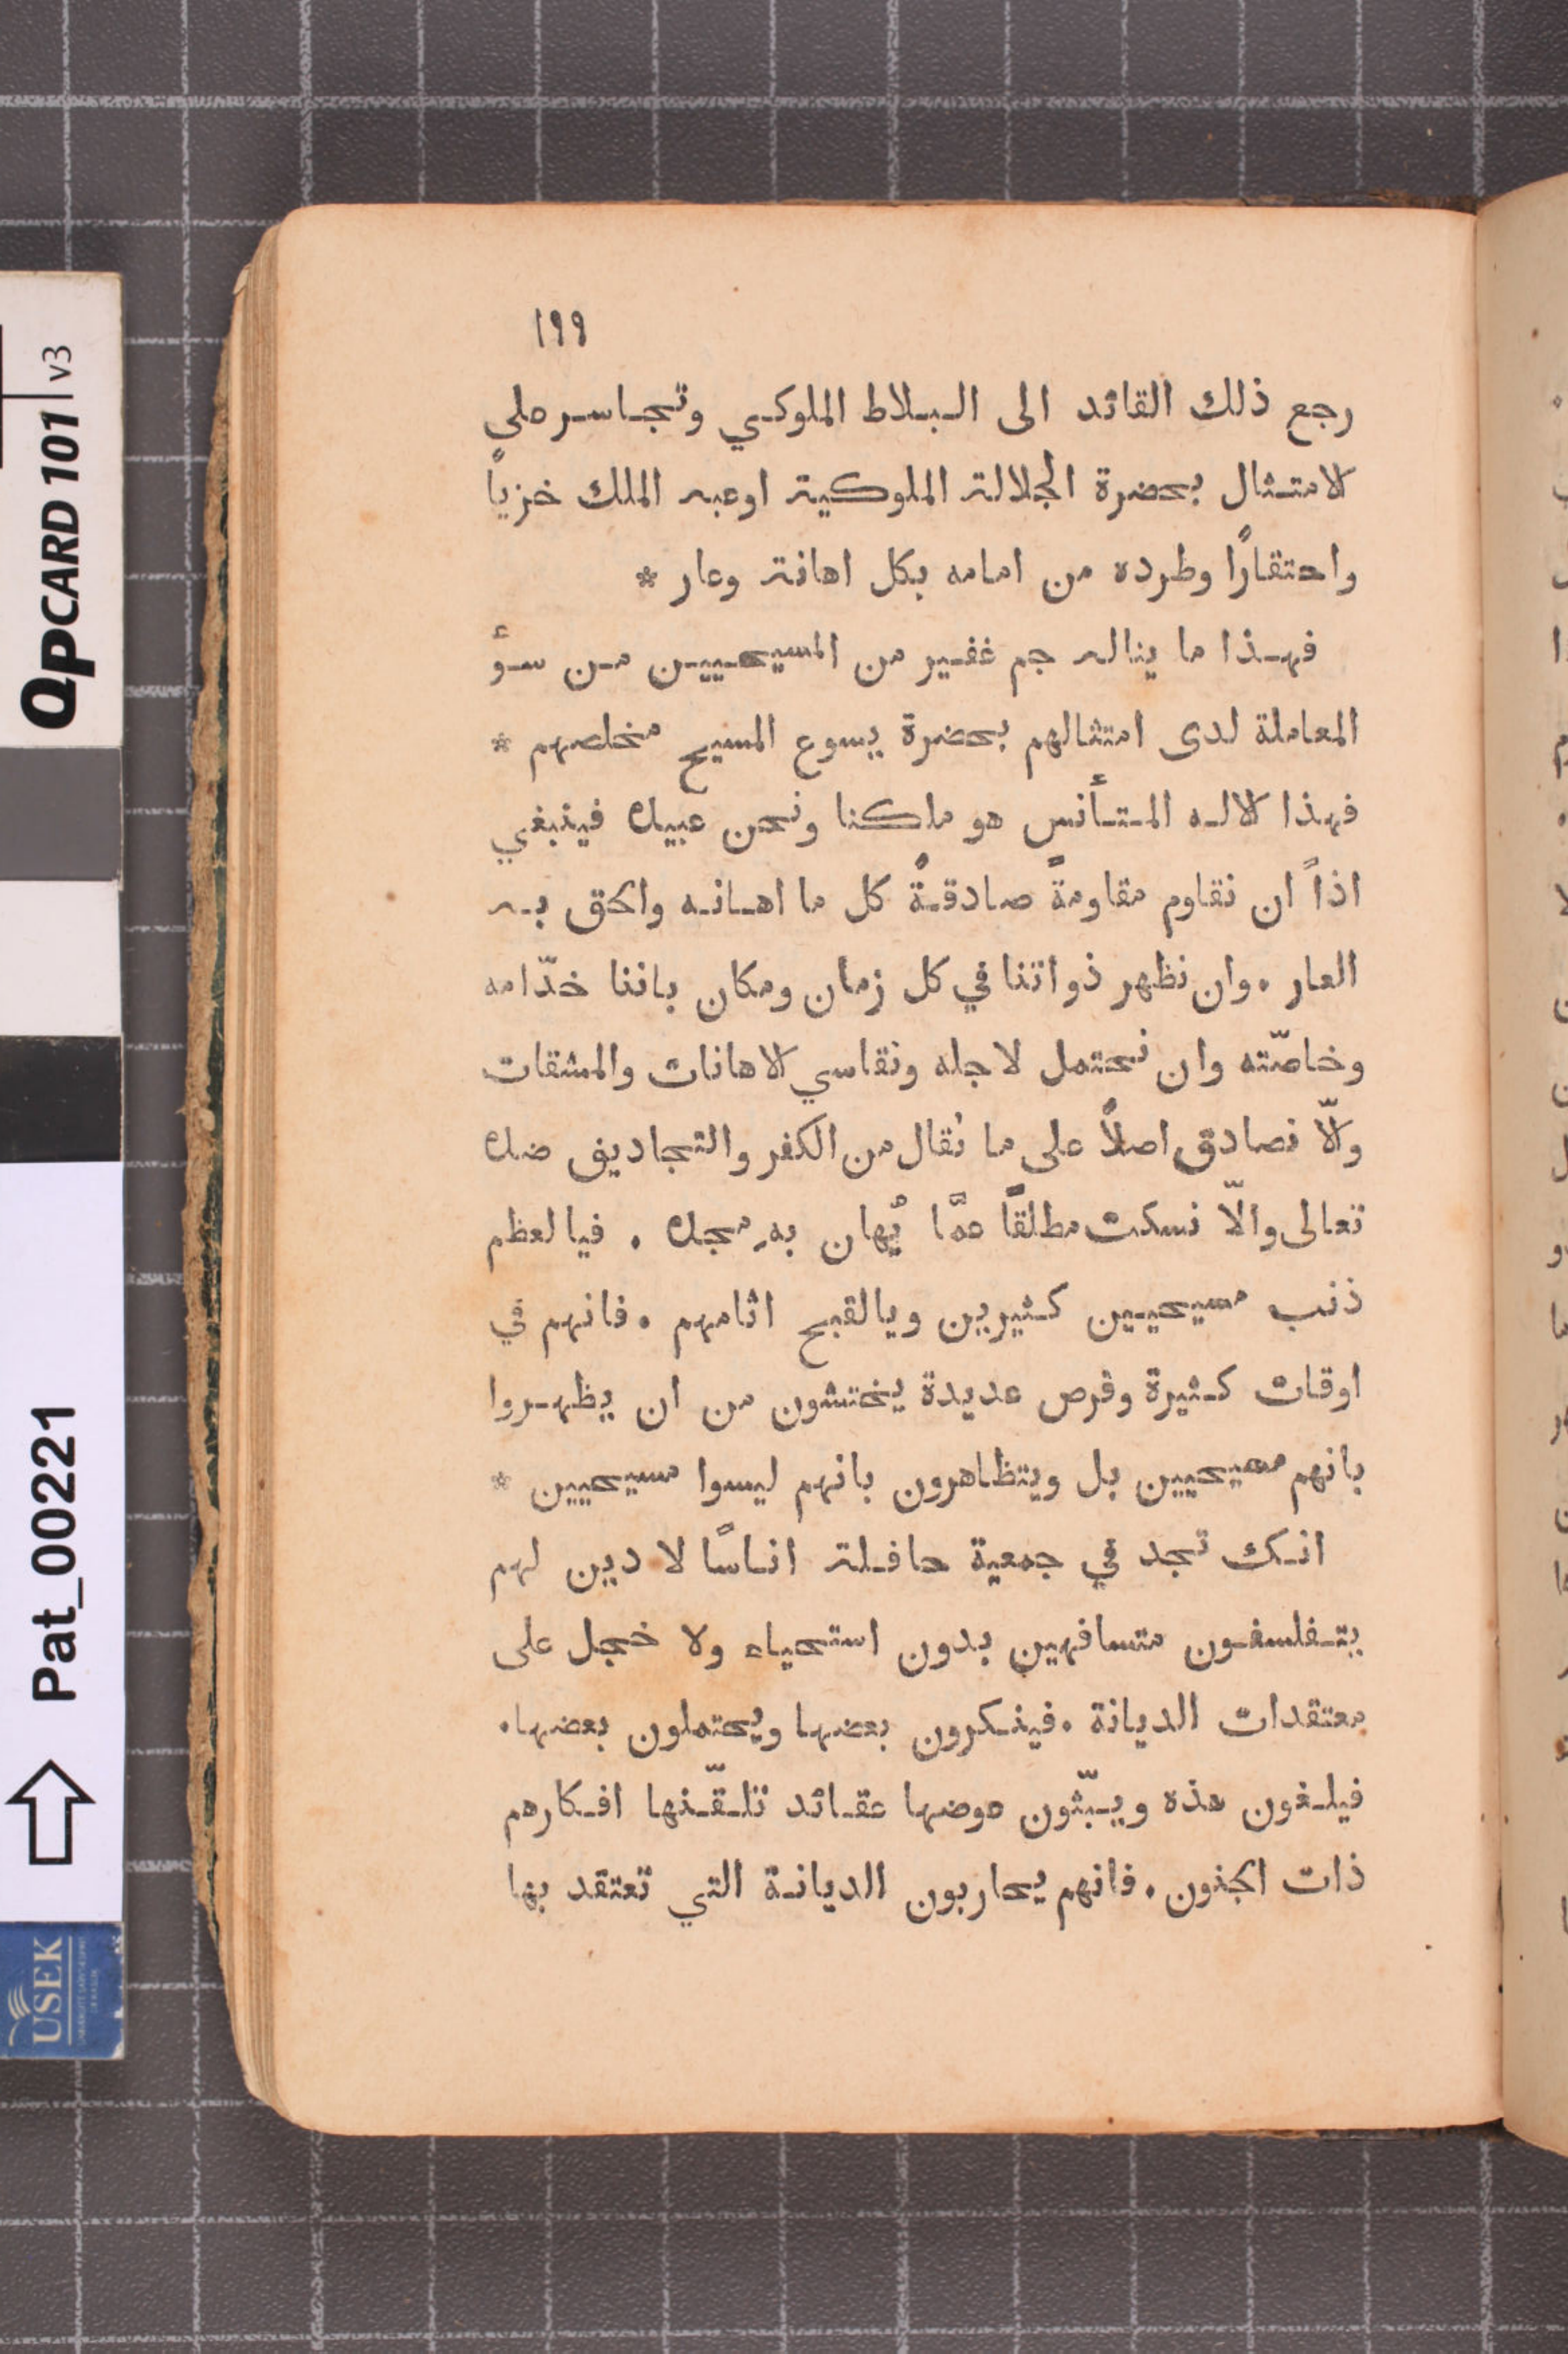 ١٩٩
رجع ذلك القائد الى البلاط الملوكي وتجاسر على
الامتثال بحضرة الجلالة الملوكية اوعبه الملك خزياً
واحتقارًا وطرده من امامه بكل اهانة وعار *
فهذا ما يناله جم غفير من المسيحيين من سوء
المعاملة لدى امتثالهم بحضرة يسوع المسيح مخلصهم *
فهذا الاله المتأنس هو ملكنا ونحن عبيده فينبغي
اذاً ان نقاوم مقاومةً صادقةً كل ما اهانه والحق به
العار . وان نظهر ذواتنا في كل زمان ومكان باننا خدّامه
وخاصّته وان نحتمل لاجله ونقاسي الاهانات والمشقات
والّا نصادق اصلاً على ما يُقال من الكفر والتجاديف ضده
تعالى والّا نسكت مطلقاً عمَّا يُهان بهِ مجده . فيا لعظم
ذنب مسيحيين كثيرين ويالقبح اثامهم . فانهم في
اوقات كثيرة وفرص عديدة يختشون من ان يظهروا
بانهم مسيحيين بل ويتظاهرون بانهم ليسوا مسيحيين *
انك تجد في جمعية حافلة اناسًا لا دين لهم
يتفلسفون متسافهين بدون استحياء ولا خجل على
معتقدات الديانة . فينكرون بعضها ويحتملون بعضها .
فيلغون هذه ويبثّون عوضها عقائد تلقّنها افكارهم
ذات الجنون . فانهم يحاربون الديانة التي تعتقد بها
QPCARD 101 v3
Pat_00221
USEK